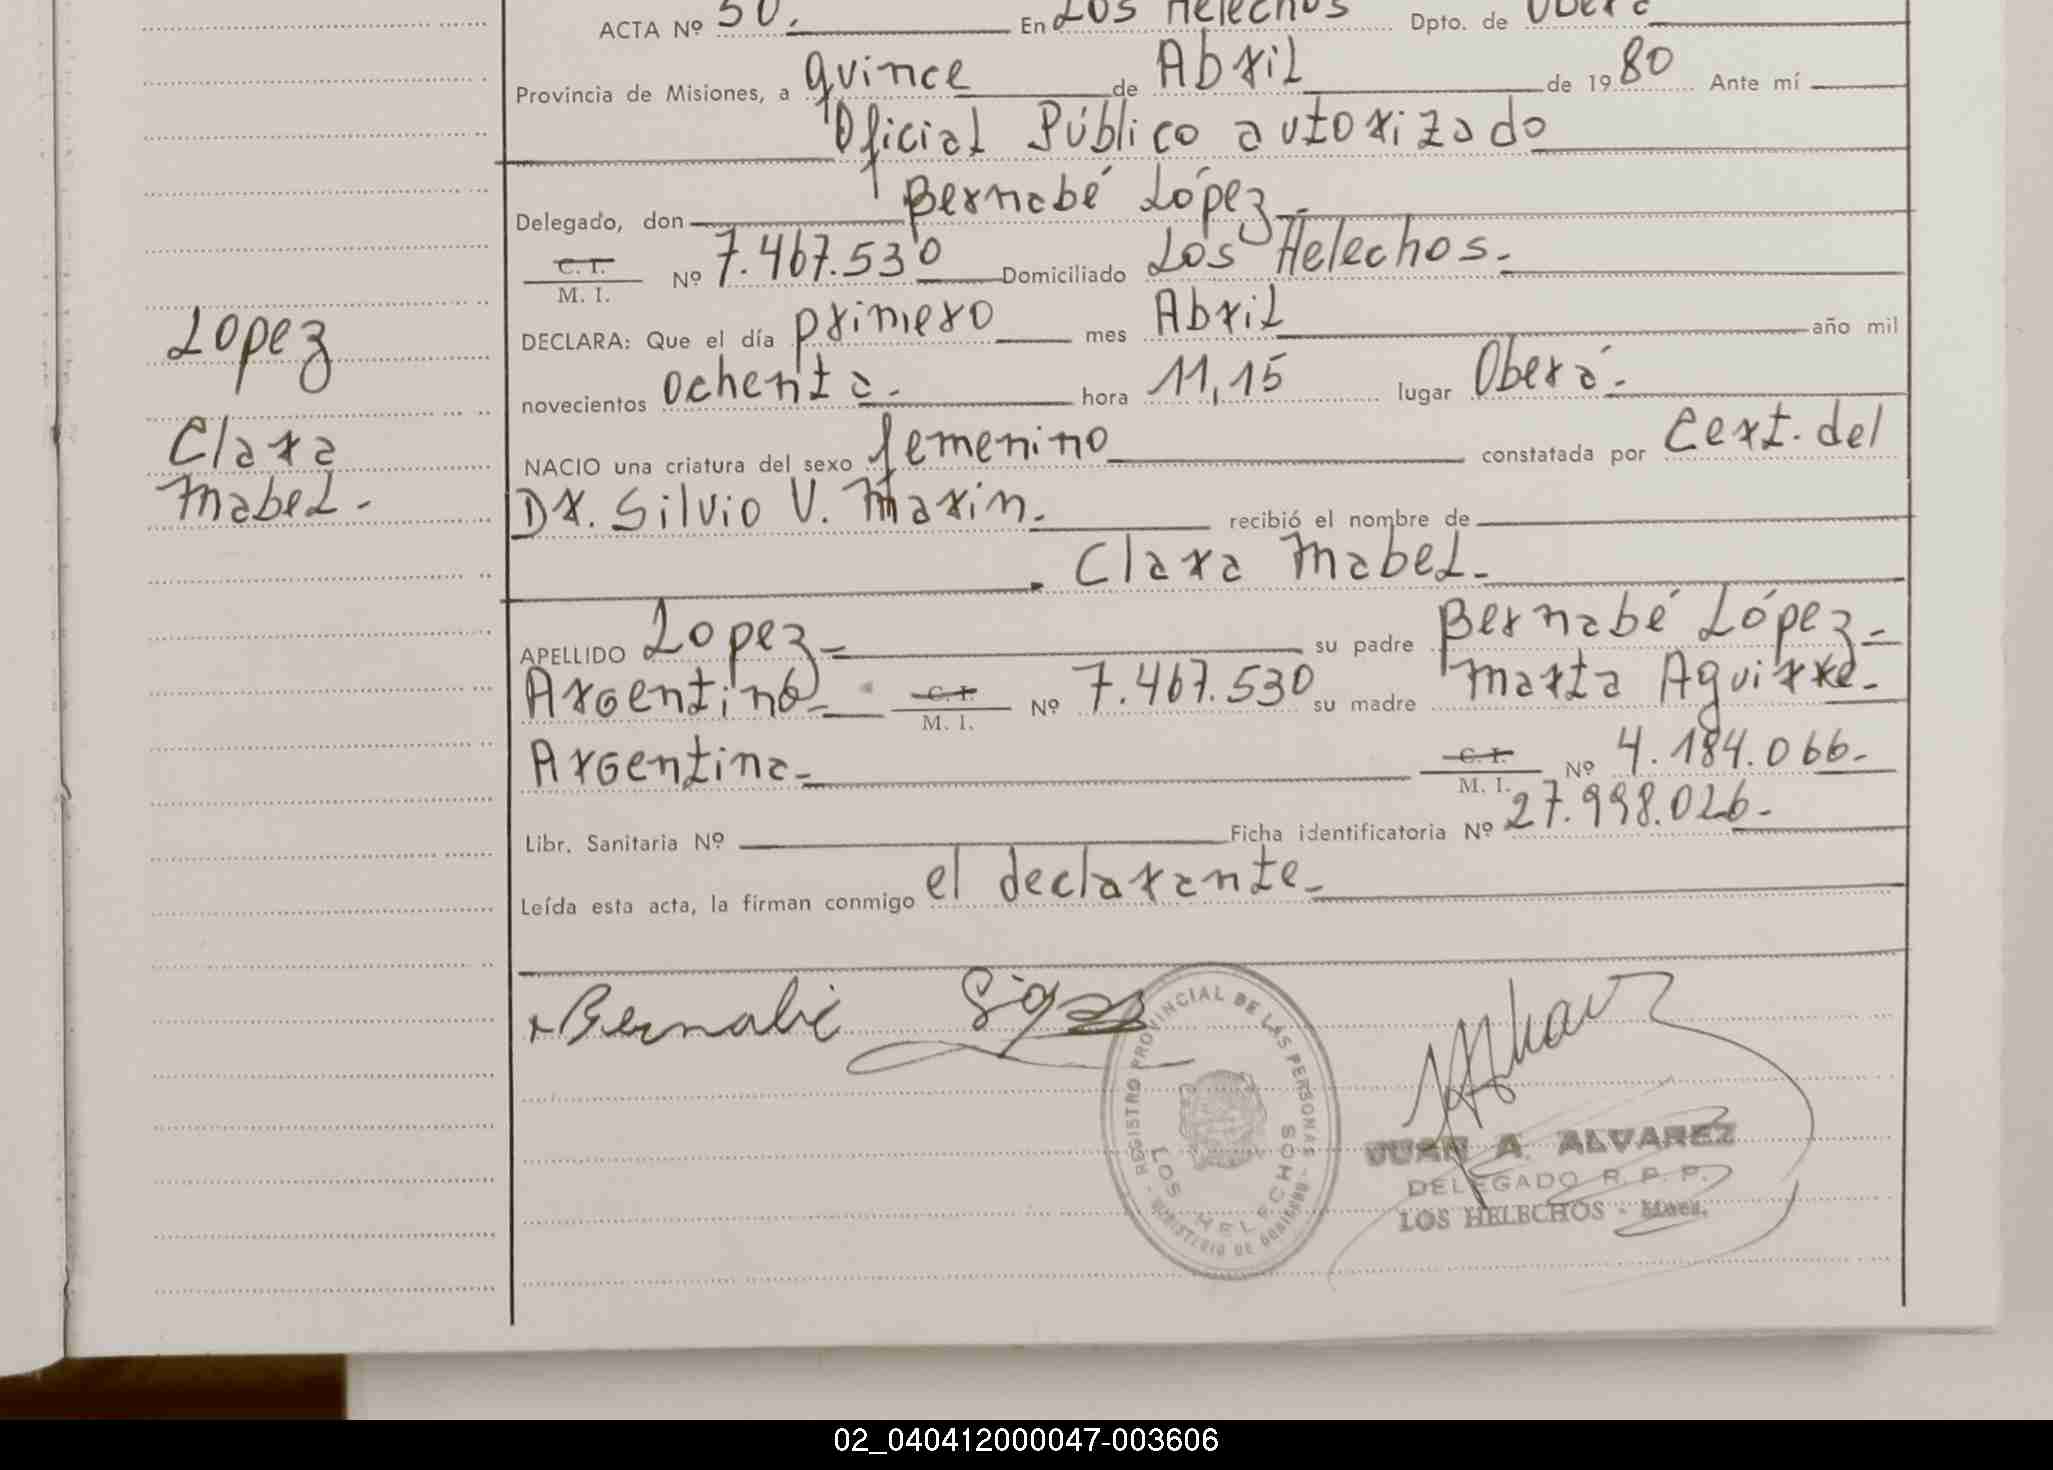 ACTA Nº 50. En Los Helechos Dpto. de Oberá
Provincia de Misiones, a quince de Abril de 1980 Ante mí
Oficial Público autorizado
Delegado, don Bernabé López
C. I. M. I. Nº 7.467.530 Domiciliado Los Helechos.
DECLARA: Que el día primero mes Abril año mil
novecientos ochenta. hora 11,15 lugar Oberá.
NACIO una criatura del sexo femenino constatada por Cert. del
Dr. Silvio V. Marin. recibió el nombre de
Clara Mabel.
Lopez
Clara
Mabel.
APELLIDO Lopez su padre Bernabé López
Argentino C. I. M. I. Nº 7.467.530 su madre Marta Aguirre.
Argentina C. I. M. I. Nº 4.184.066.
Libr. Sanitaria Nº Ficha identificatoria Nº 27.998.026.
Leída esta acta, la firman conmigo el declarante.
Bernabé
REGISTRO PROVINCIAL DE LAS PERSONAS - MINISTERIO DE GOBIERNO -
LOS HELECHOS
JUAN A. ALVAREZ
DELEGADO R. P. P.
LOS HELECHOS - Mnes.
02_040412000047-003606